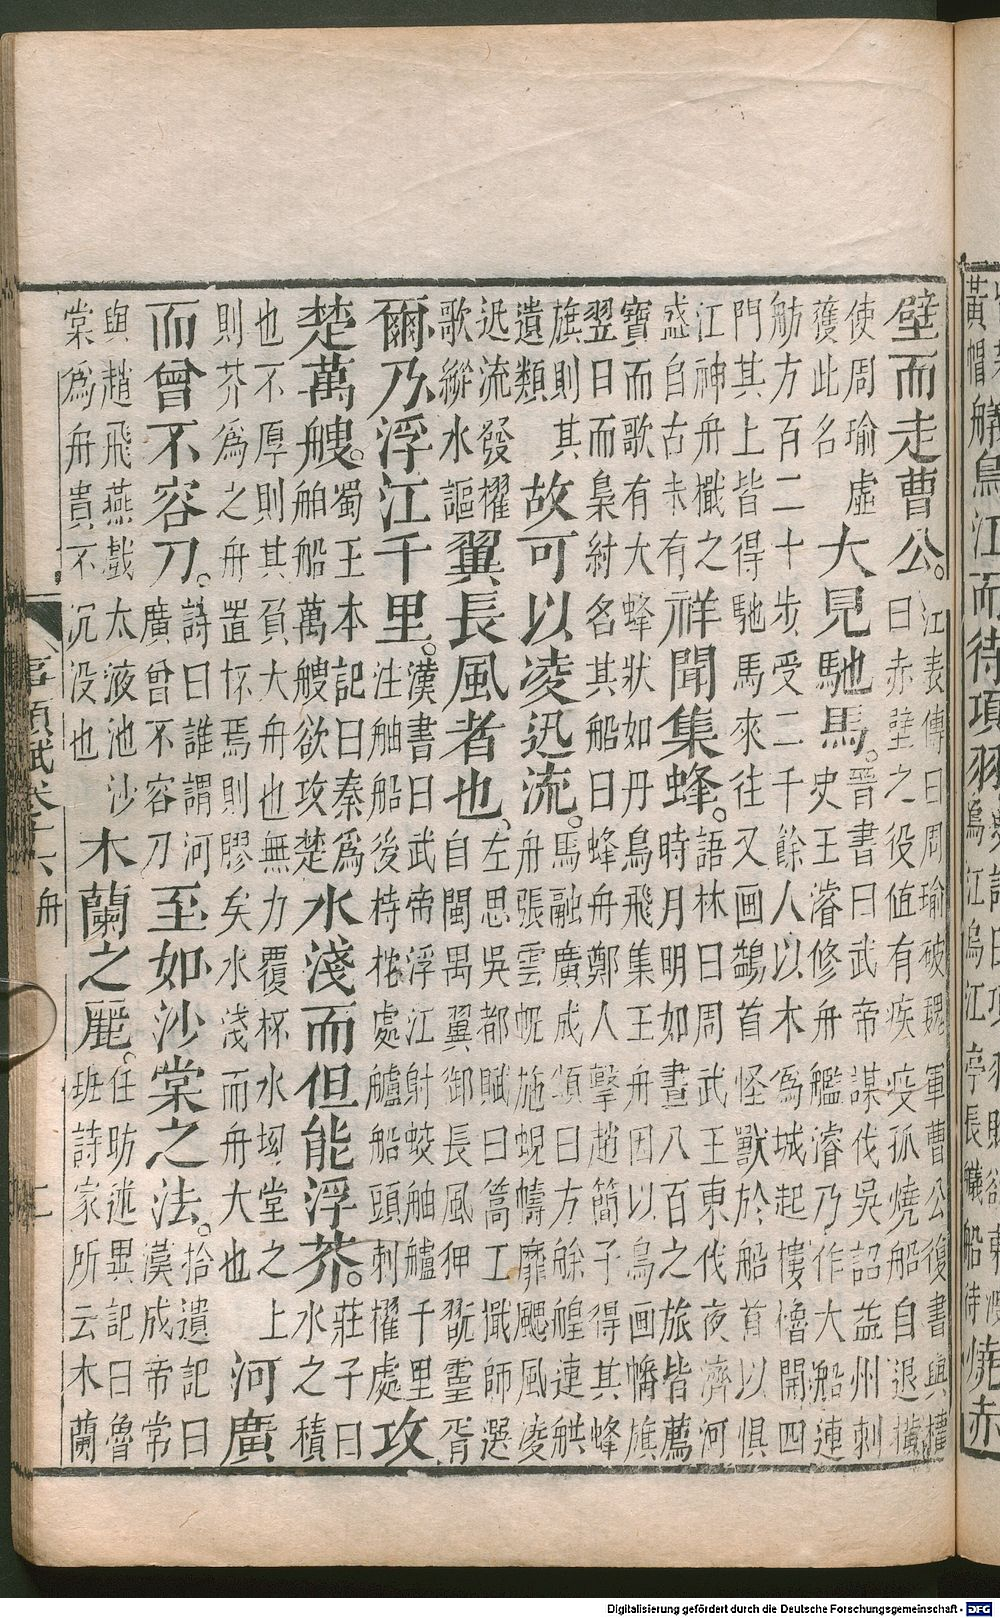 黃帽艤烏江而待項羽
燒赤
壁而走曹公。江表傳曰周瑜破魏軍曹公復書與權曰赤壁之役值有疾疫孤燒船自退橫
使周瑜虛獲此名大見馳馬。晉書曰武帝謀伐吳詔益州刺史王濬修舟艦濬乃作大船連
舫方百二十步受二千餘人以木為城起樓櫓開四門其上皆得馳馬來往又画鷁首怪獸於船首以惧
江神舟檝之盛自古未有祥聞集蜂。語林曰周武王東伐夜濟河時月明如晝八百之旅皆薦
寶而歌有大蜂狀如丹鳥飛集王舟因以鳥画幡旗翌日而梟紂名其船曰蜂舟鄭人擊趙簡子得其蜂
旗則其遺類故可以凌迅流。馬融廣成頌曰方艅艎連舼舟張雲帆施蜺幬靡颸風凌
迅流發櫂歌縱水謳翼長風者也、左思吳都賦曰篙工檝師選自閩禺翼御長風狎翫靈胥
爾乃浮江千里。漢書曰武帝浮江射蛟舳艫千里注舳船後持柁處艫船頭刺櫂處攻
楚萬艘。蜀王本記曰秦為舶船萬艘欲攻楚水淺而但能浮芥。莊子曰水之積
也不厚則其負大舟也無力覆杯水坳堂之上則芥為之舟置杯焉則膠矣水淺而舟大也河廣
而曾不容刀。詩曰誰謂河廣曾不容刀至如沙棠之法。拾遺記曰漢成帝常
與趙飛燕戲太液池沙棠為舟貴不沉没也木蘭之麗。任昉述異記曰魯班詩家所云木蘭
事類賦卷十六舟 二
Digitalisierung gefördert durch die Deutsche Forschungsgemeinschaft - DFG